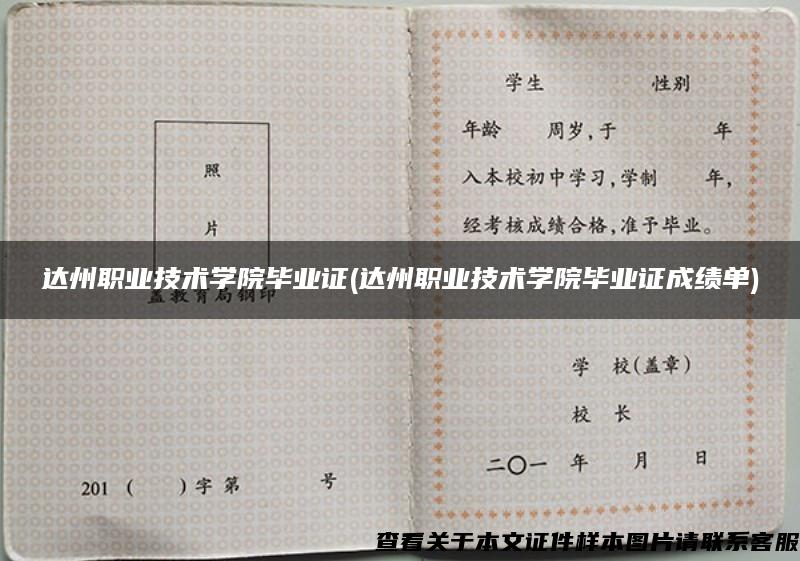 照
片
盖教育局钢印
201 ( )字第 号
学生 性别
年龄 周岁,于 年
入本校初中学习,学制 年,
经考核成绩合格,准予毕业。
达州职业技术学院毕业证(达州职业技术学院毕业证成绩单)
学 校(盖章)
校 长
二〇一 年 月 日
查看关于本文证件样本图片请联系客服